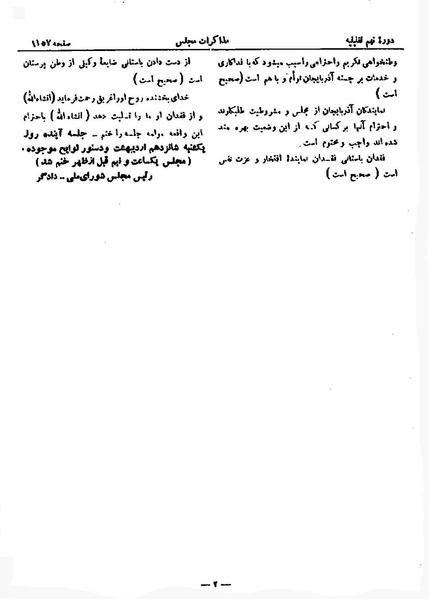 دورهٔ نهم تقنینیه
مذاکرات مجلس
صفحه ۱۱۵۷
وطنخواهی تکریم و احترامی را سبب میشود که با فداکاری
و خدمات برجسته آذربایجان توأم و با هم است (صحیح
است)
نمایندگان آذربایجان از مجلس و مشروطیت طلبکارند
و احترام آنها بر کسانی که از این وضعیت بهره مند
شده اند واجب و محتوم است.
فقدان باستانی فقدان نمایندهٔ افتخار و عزت نفس
است (صحیح است)
از دست دادن باستانی ضایعهٔ وکیلی از وطن پرستان
است (صحیح است)
خدای بخشنده روح او را غریق رحمت فرماید (انشاءالله)
و از فقدان او ما را تسلیت دهد (انشاءالله) باحترام
این واقعه مؤلمه جلسه را ختم – جلسه آینده روز
یکشنبه شانزدهم اردیبهشت و دستور لوایح موجوده.
(مجلس یکساعت و نیم قبل از ظهر ختم شد)
رئیس مجلس شورای ملی – دادگر
— ۲ —